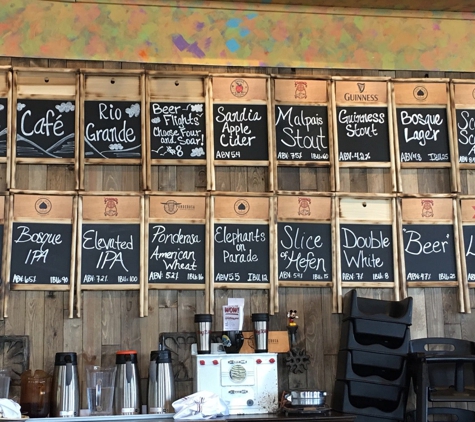 Café
Rio
Grande
Beer
Flights
Choose Four
and Soar!
8
Sandia
Apple
Cider
ABV 5.4
Malpais
Stout
ABV: 7.5% IBU: 60
GUINNESS
Guinness
Stout
ABV: 4.2%
Bosque
Lager
ABV 4.8 IBU 25
Bosque
IPA
ABV: 6.5% IBU: 90
Elevated
IPA
ABV: 7.2% IBU: 100
Ponderosa
American
Wheat
ABV: 5.2% IBU: 16
Elephants
on
Parade
ABV 5.5 IBU 12
Slice
of Hefen
IBU: 15
Double
White
ABV: 7% IBU: 8
"Beer"
WOW!